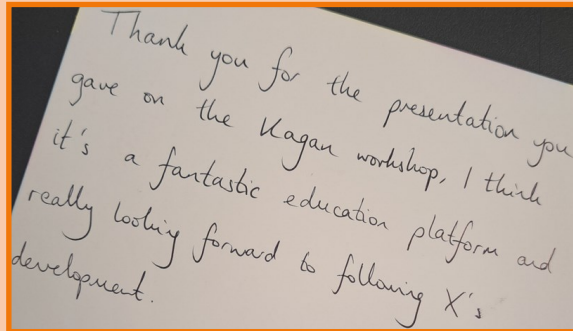 Thank you for the presentation you
gave on the Kagan workshop, I think
it's a fantastic education platform and
really looking forward to following X's
development.